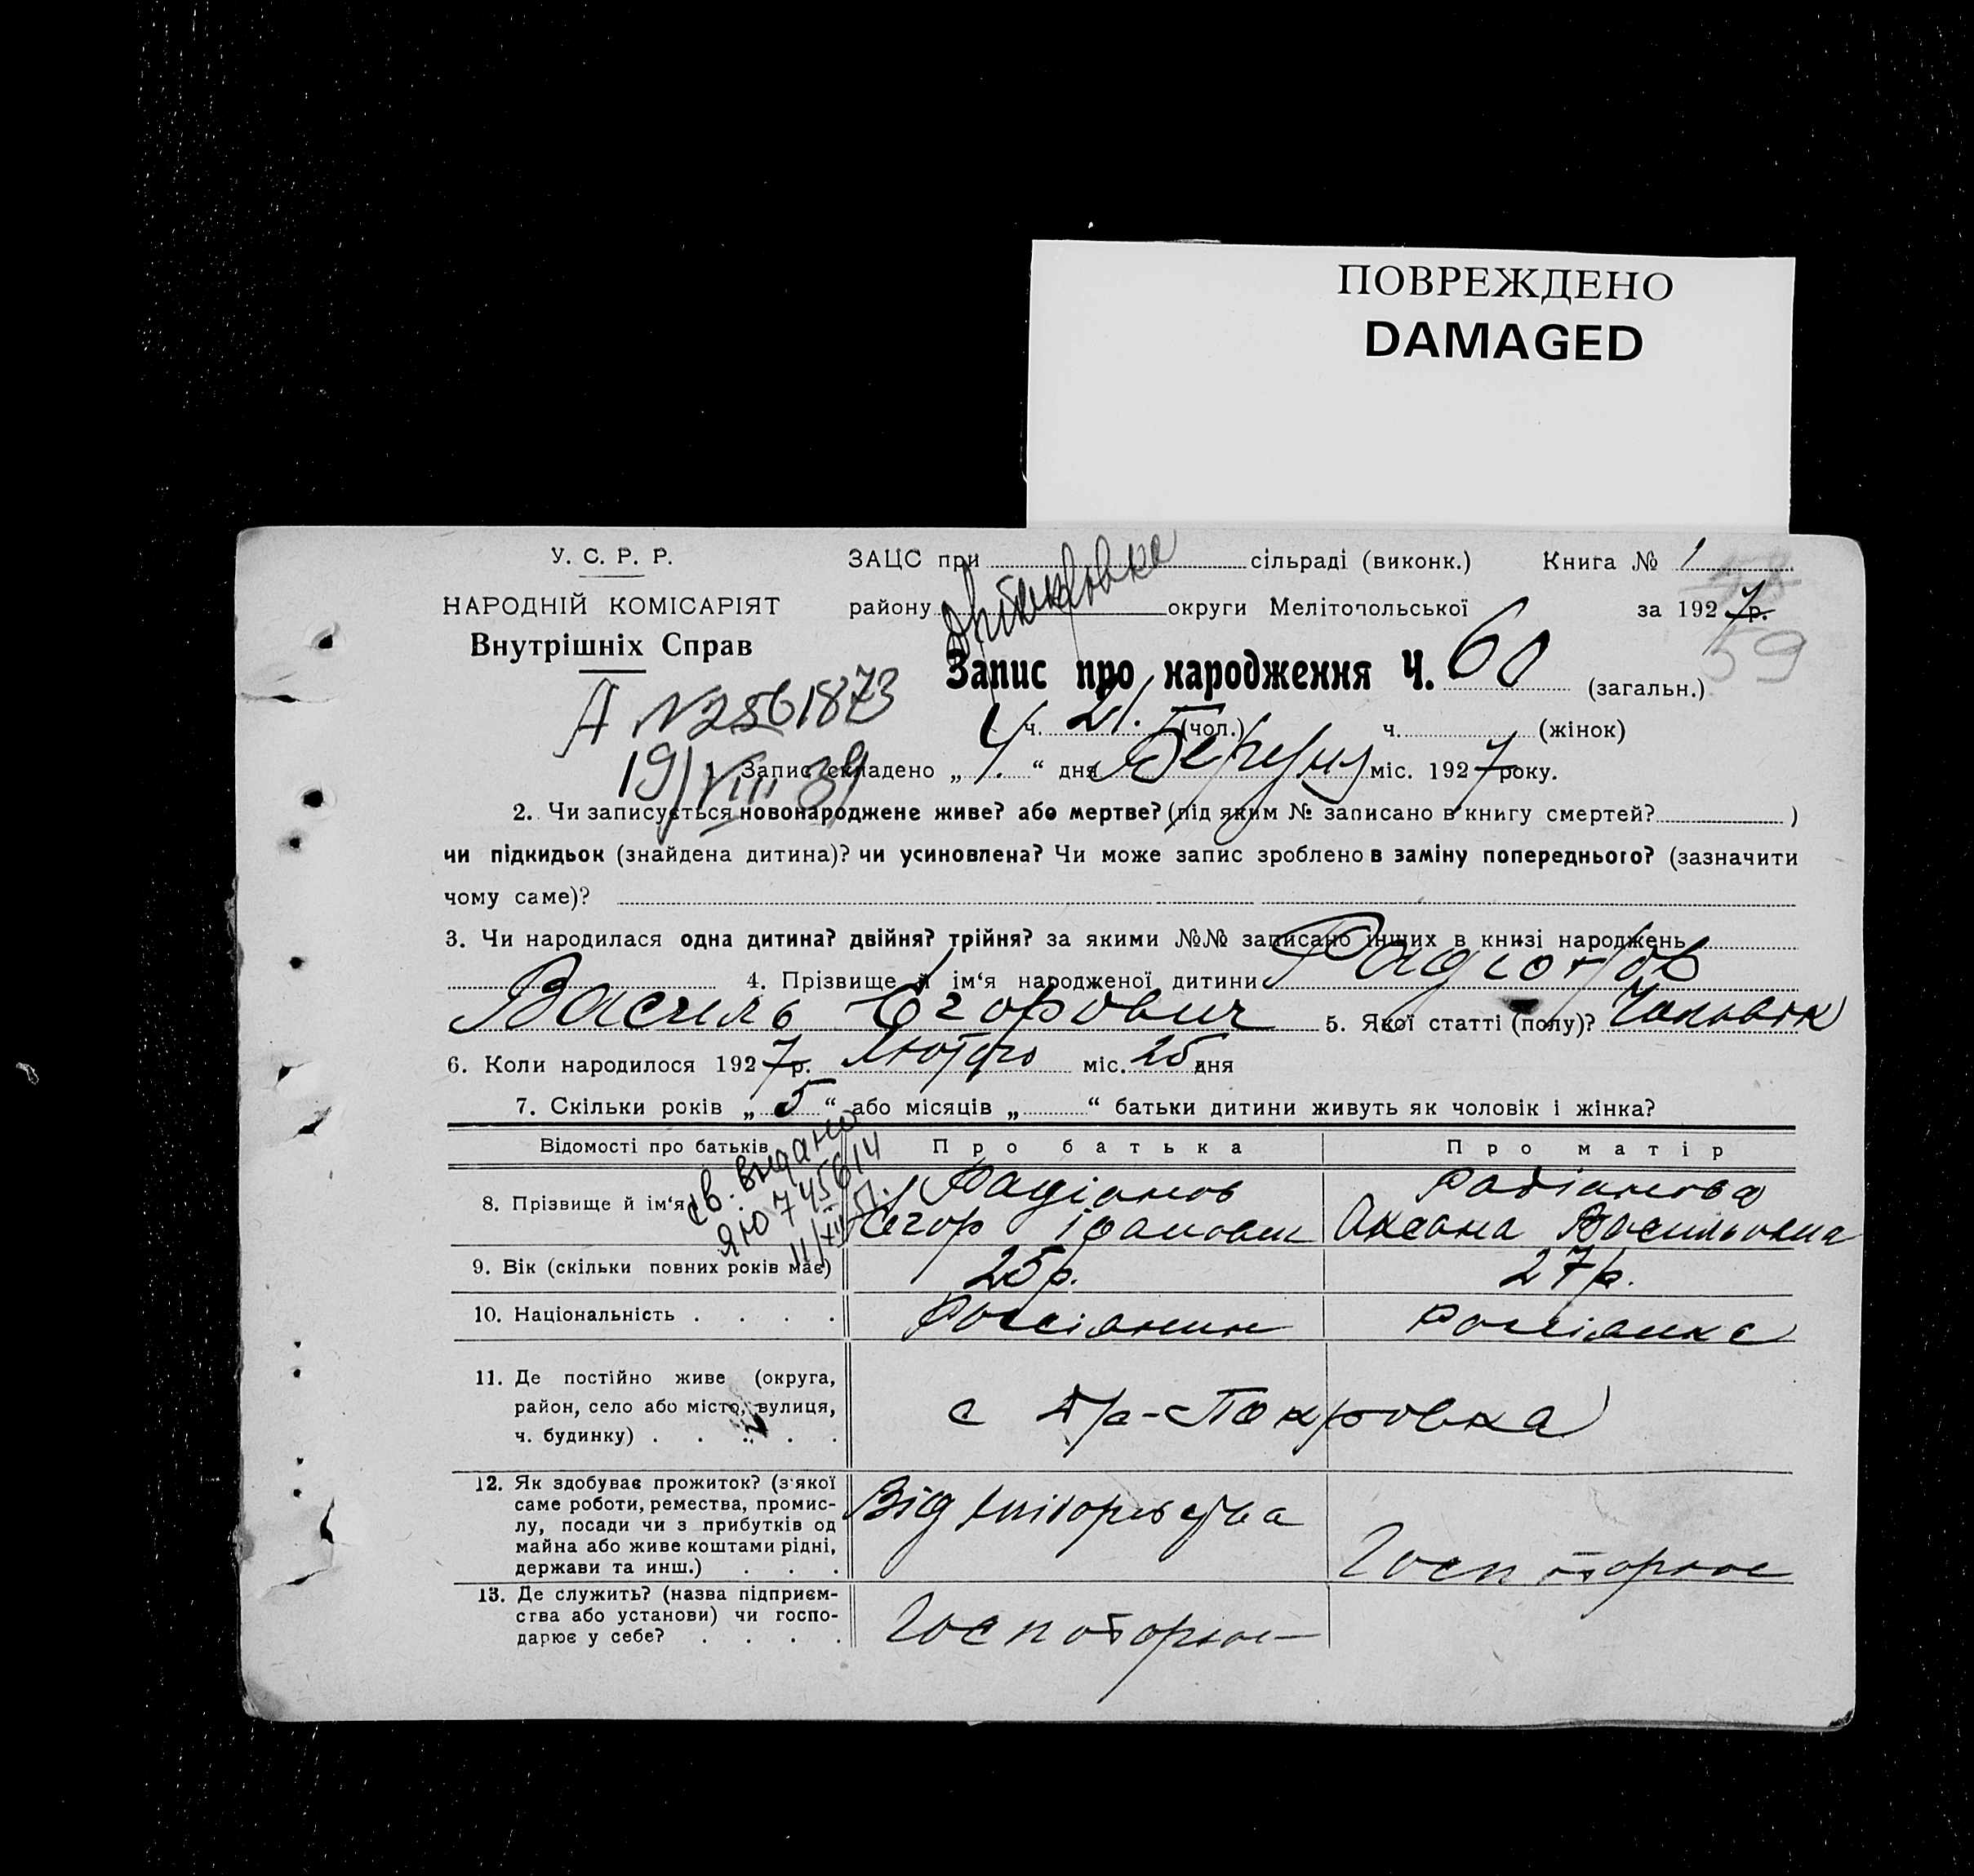 ПОВРЕЖДЕНО
DAMAGED
У. С. Р. Р.
НАРОДНІЙ КОМІСАРІЯТ
Внутрішніх Справ
ЗАЦС при сільраді (виконк.) Книга № 1
району округи Мелітопольської за 1927 р.
58
59
Запис про народження Ч. 60 (загальн.)
А N 2561873
19/VIII 39
ч. 21. (чол.) ч. (жінок)
1. Запис складено „ 4. “ дня міс. 1927 року.
2. Чи записується новонароджене живе? або мертве? (під яким № записано в книгу смертей? )
чи підкидьок (знайдена дитина)? чи усиновлена? Чи може запис зроблено в заміну попереднього? (зазначити
чому саме)?
3. Чи народилася одна дитина? двійня? трійня? за якими №№ записано інших в книзі народжень
4. Прізвище й ім‘я народженої дитини Радіонов
Василь Єгорович 5. Якої статті (полу)? Чоловік
6. Коли народилося 1927 р. Лютого міс. 25 дня
7. Скільки років „ 5 “ або місяців „ “ батьки дитини живуть як чоловік і жінка?
Відомості про батьків Про батька Про матір
св. видано
ЯЮ 745614
8. Прізвище й ім‘я Радіонов Радіонова
Єгор Іванович Оксана Васильовна
9. Вік (скільки повних років має) 25 р. 27 р.
10. Національність . . . . Россіянин Россіянка
11. Де постійно живе (округа,
район, село або місто, вулиця,
ч. будинку) . . . . .
с Покровка
12. Як здобуває прожиток? (з якої
саме роботи, ремества, промис-
лу, посади чи з прибутків од
майна або живе коштами рідні,
держави та инш.) . . .
Від
13. Де служить? (назва підприєм-
ства або установи) чи госпо-
дарює у себе? . . . .